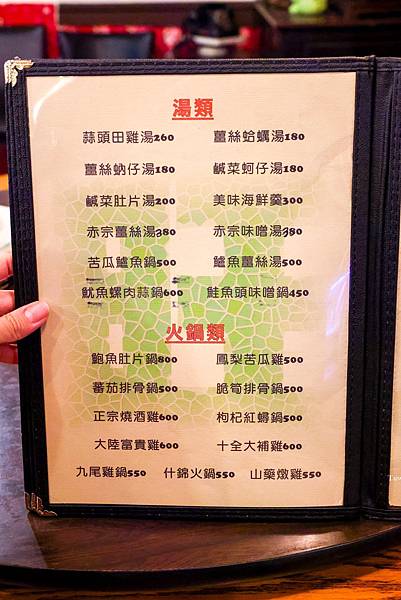 湯類
蒜頭田雞湯260 薑絲蛤蠣湯180
薑絲蚋仔湯180 鹹菜蚵仔湯180
鹹菜肚片湯200 美味海鮮羹300
赤宗薑絲湯280 赤宗味噌湯280
苦瓜鱸魚鍋500 鱸魚薑絲湯500
魷魚螺肉蒜鍋600 鮭魚頭味噌鍋450
火鍋類
鮑魚肚片鍋800 鳳梨苦瓜雞500
蕃茄排骨鍋500 脆筍排骨鍋500
正宗燒酒雞600 枸杞紅蟳鍋500
大陸富貴雞600 十全大補雞600
九尾雞鍋550 什錦火鍋550 山藥燉雞550